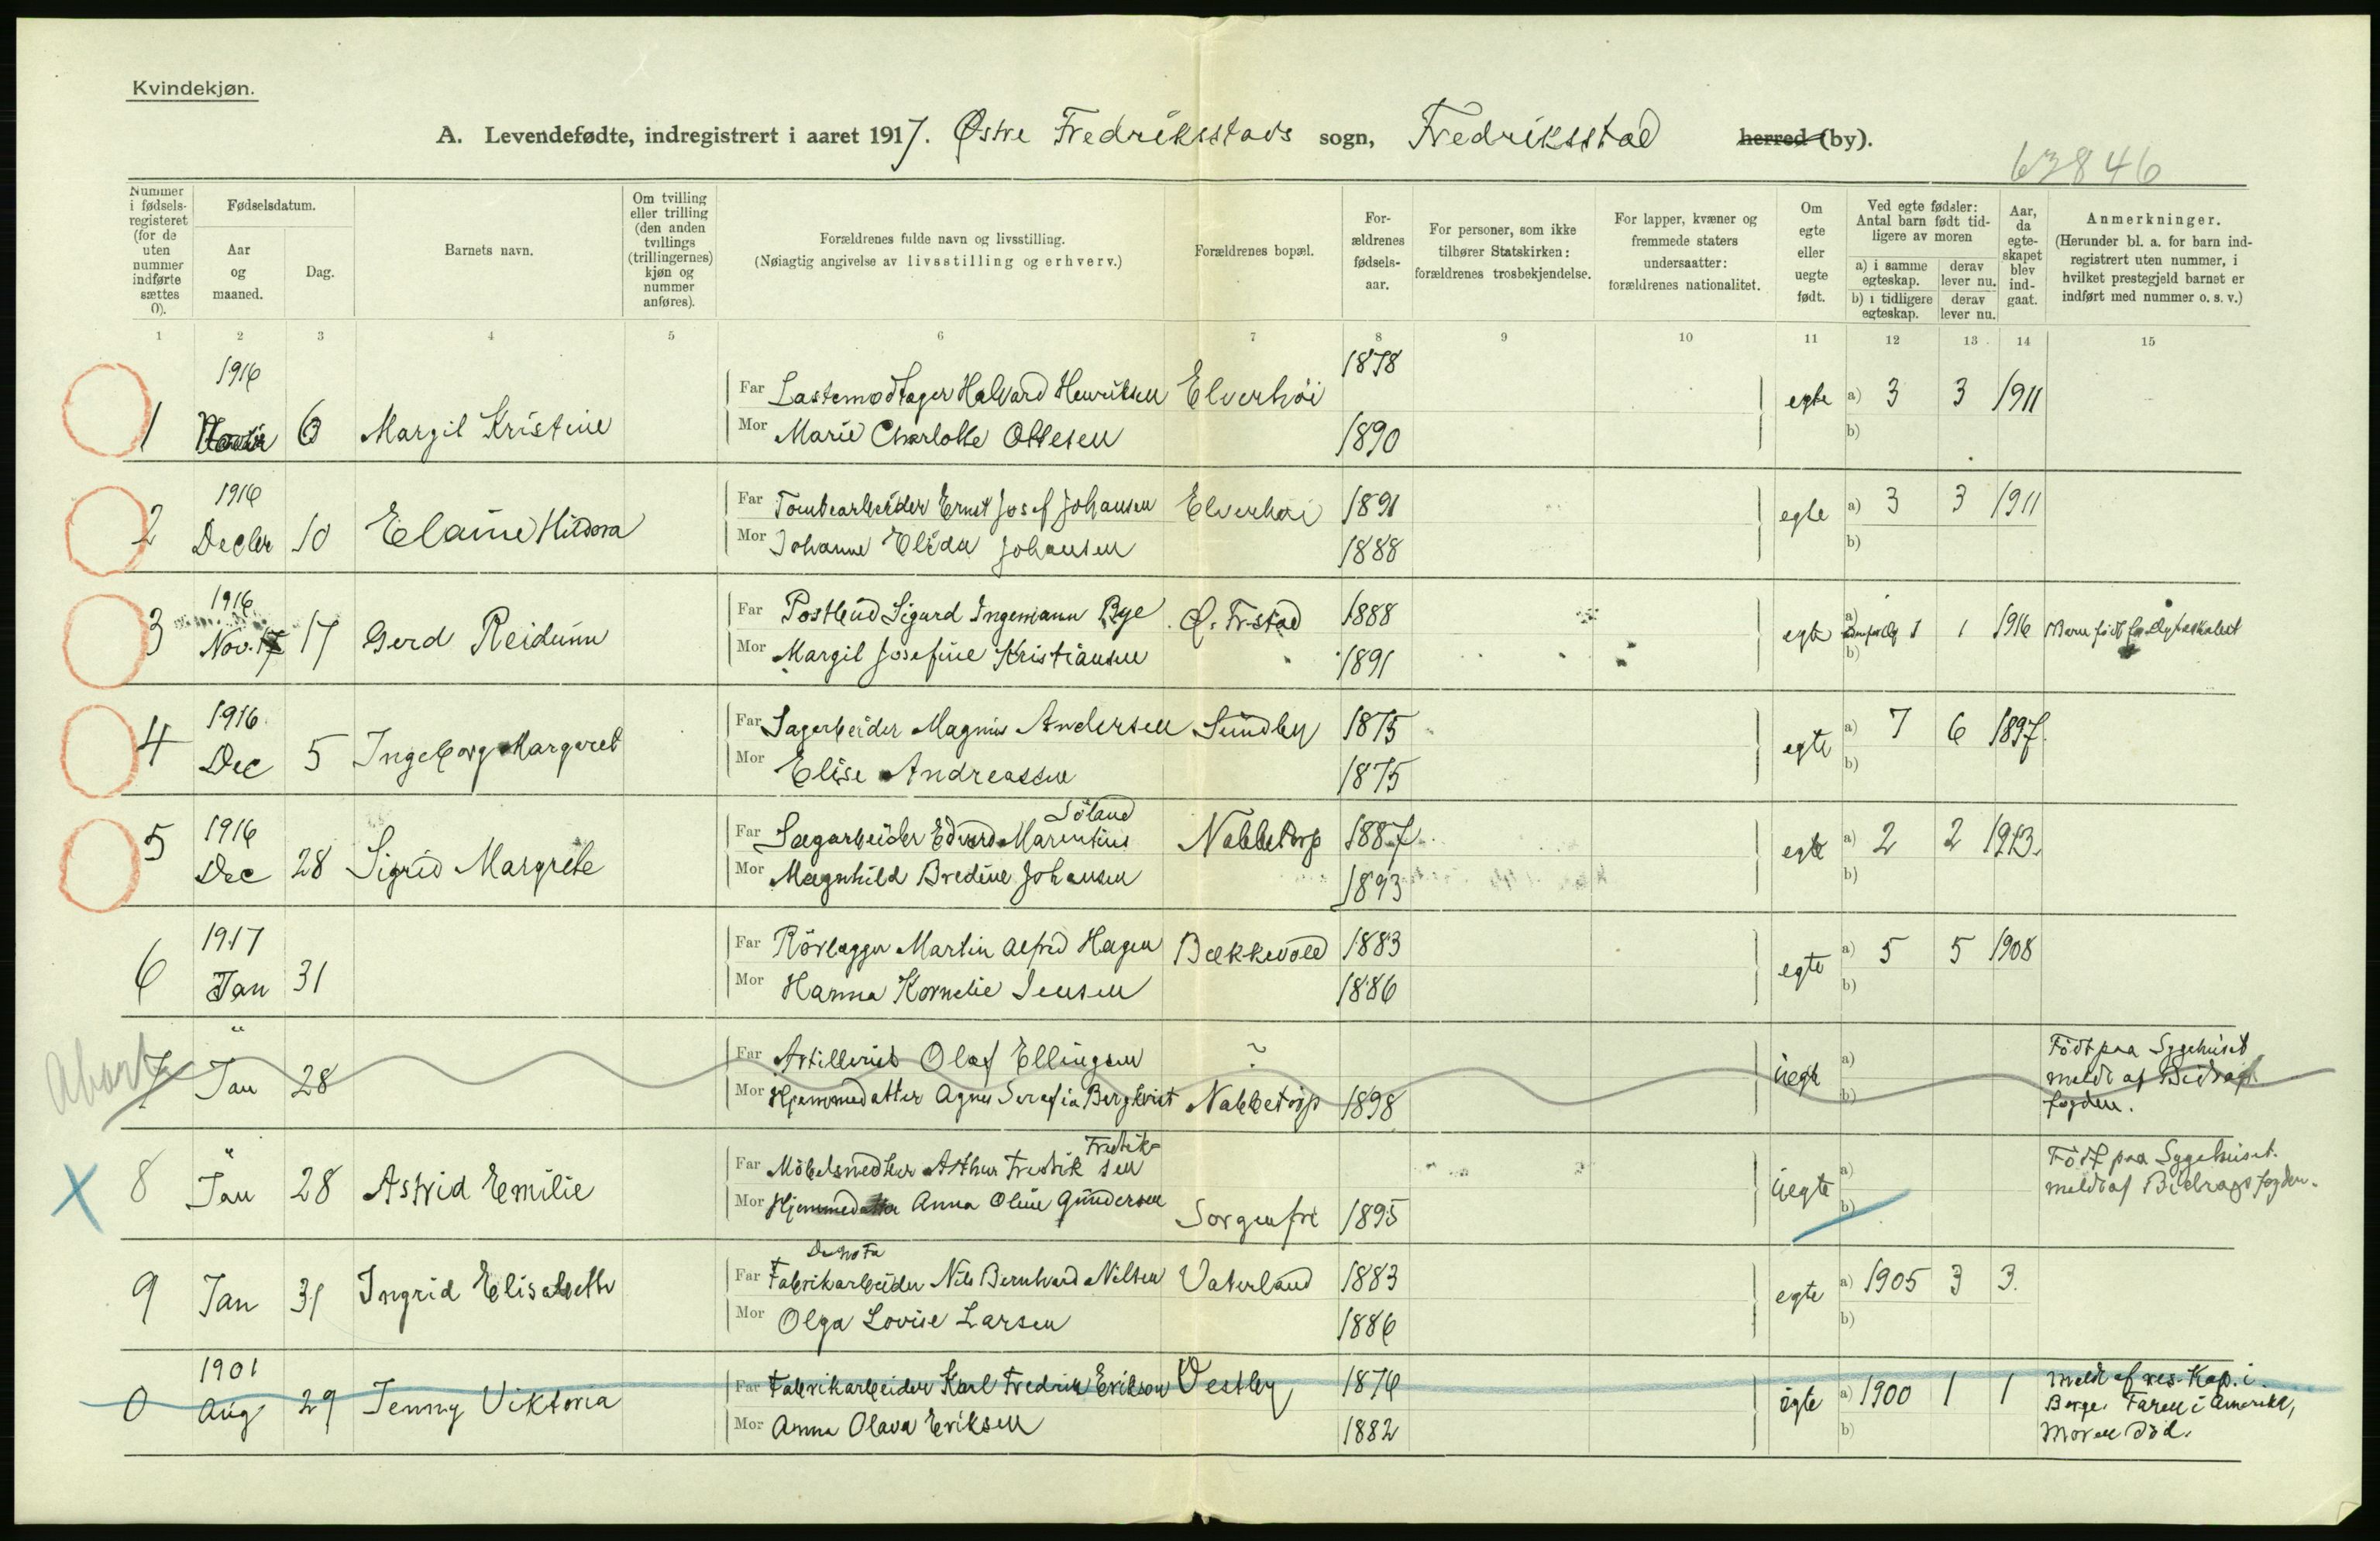 Kvindekjøn.
A. Levendefødte, indregistrert i aaret 1917. Østre Fredriksstads sogn, Fredriksstad herred (by).
63846
Nummer i fødsels-registeret (for de uten nummer indførte sættes 0).
Fødselsdatum.
Aar og maaned.
Dag.
Barnets navn.
Om tvilling eller trilling (den anden tvillings (trillingernes) kjøn og nummer anføres).
Forældrenes fulde navn og livsstilling.
(Nøiagtig angivelse av livsstilling og erhverv.)
Forældrenes bopæl.
For-ældrenes fødsels-aar.
For personer, som ikke tilhører Statskirken: forældrenes trosbekjendelse.
For lapper, kvæner og fremmede staters undersaatter: forældrenes nationalitet.
Om egte eller uegte født.
Ved egte fødsler: Antal barn født tid-ligere av moren
a) i samme egteskap.
derav lever nu.
b) i tidligere egteskap.
derav lever nu.
Aar, da egte-skapet blev ind-gaat.
Anmerkninger.
(Herunder bl. a. for barn ind-registrert uten nummer, i hvilket prestegjeld barnet er indført med nummer o. s. v.)
1 2 3 4 5 6 7 8 9 10 11 12 13 14 15
1916 1878
Far Lastemodtager Halvard Henriksen Elverhöi
1 6 Margit Kristine egte a) 3 3 1911
Mor Marie Charlotte Ottesen 1890 b)
1916
Far Tomtearbeider Ernst Josef Johansen Elverhöi 1891
2 Decbr 10 Elaine Hildora egte a) 3 3 1911
Mor Johanne Elida Johansen 1888 b)
1916
Far Postbud Sigurd Ingemann Bye Ø. Fr.stad 1888
3 Nov. 17 17 Gerd Reidunn egte a) 1 1 1916 Barn født før Egteskabet
Mor Margit Josefine Kristiansen 1891 b)
1916
Far Sagarbeider Magnus Andersen Sundby 1875
4 Dec 5 Ingeborg Margaret egte a) 7 6 1897.
Mor Elise Andreassen 1875 b)
1916 Söland
Far Sagarbeider Edvard Marentius Nabbetorp 1887
5 Dec 28 Sigrid Margrete egte a) 2 2 1913.
Mor Magnhild Bredine Johansen 1893 b)
1917
Far Rörlægger Martin Alfred Hagen Bækkevold 1883
6 Jan 31 egte a) 5 5 1908
Mor Hanna Kornelie Jensen 1886 b)
Abort
"
Far Artillerist Olaf Ellingsen ? Födt paa Sygehuset
7 Jan 28 uegte a) meldt af Bidrags
Mor Hjemmedatter Agnes Serafia Bergkvist Nabbetorp 1898 b) fogden.
" Fredrik-
Far Möbelsnedker Arthur Fredrik sen Födt paa Sygehuset.
X 8 Jan 28 Astrid Emilie uegte a) meldt af Bidragsfogden.
Mor Hjemmedatter Anna Oline Gundersen Sorgenfri 1895 b)
Far Fabrikarbeider Nils Bernhard Nilsen Vaterland 1883
9 Jan 31 Ingrid Elisabeth egte a) 1905 3 3.
Mor Olga Lovise Larsen 1886 b)
1901
Far Fabrikarbeider Karl Fredrik Erikson Vestby 1876 Meldt af res. Kap. i
0 Aug 29 Jenny Viktoria egte a) 1900 1 1 Borge. Faren i Amerika,
Mor Anna Olava Eriksen 1882 b) Moren död.